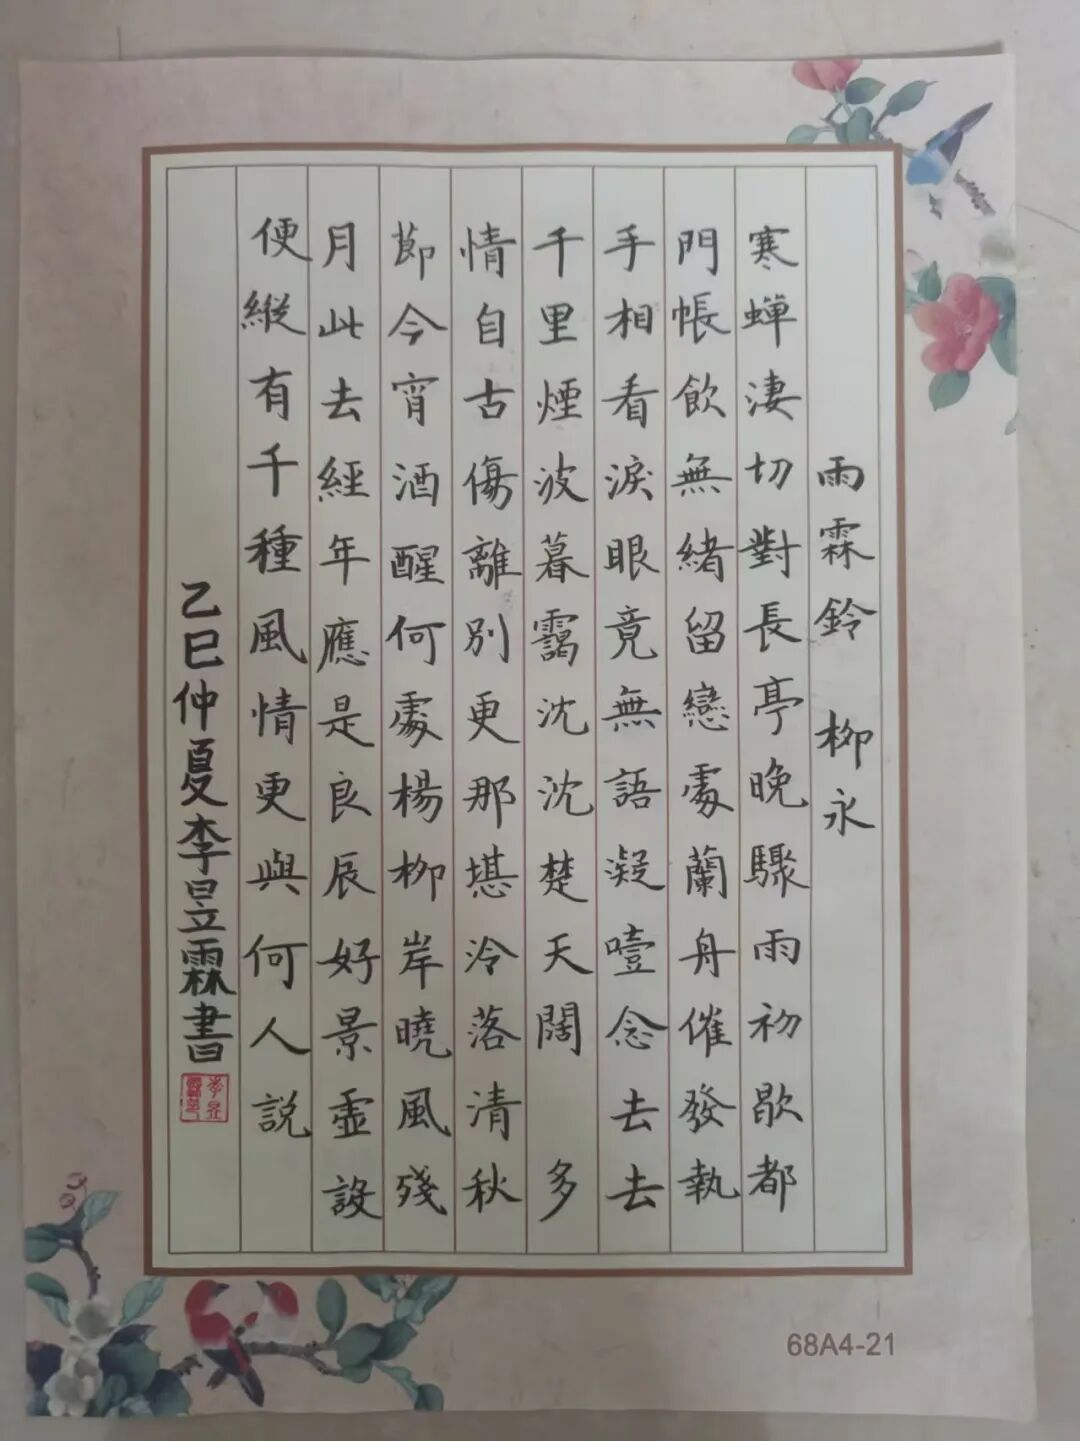 雨霖鈴 柳永
寒蟬淒切對長亭晚驟雨初歇都
門帳飲無緒留戀處蘭舟催發執
手相看淚眼竟無語凝噎念去去
千里煙波暮靄沈沈楚天闊 多
情自古傷離別更那堪冷落清秋
節今宵酒醒何處楊柳岸曉風殘
月此去經年應是良辰好景虛設
便縱有千種風情更與何人説
乙巳仲夏李昱霖書
68A4-21